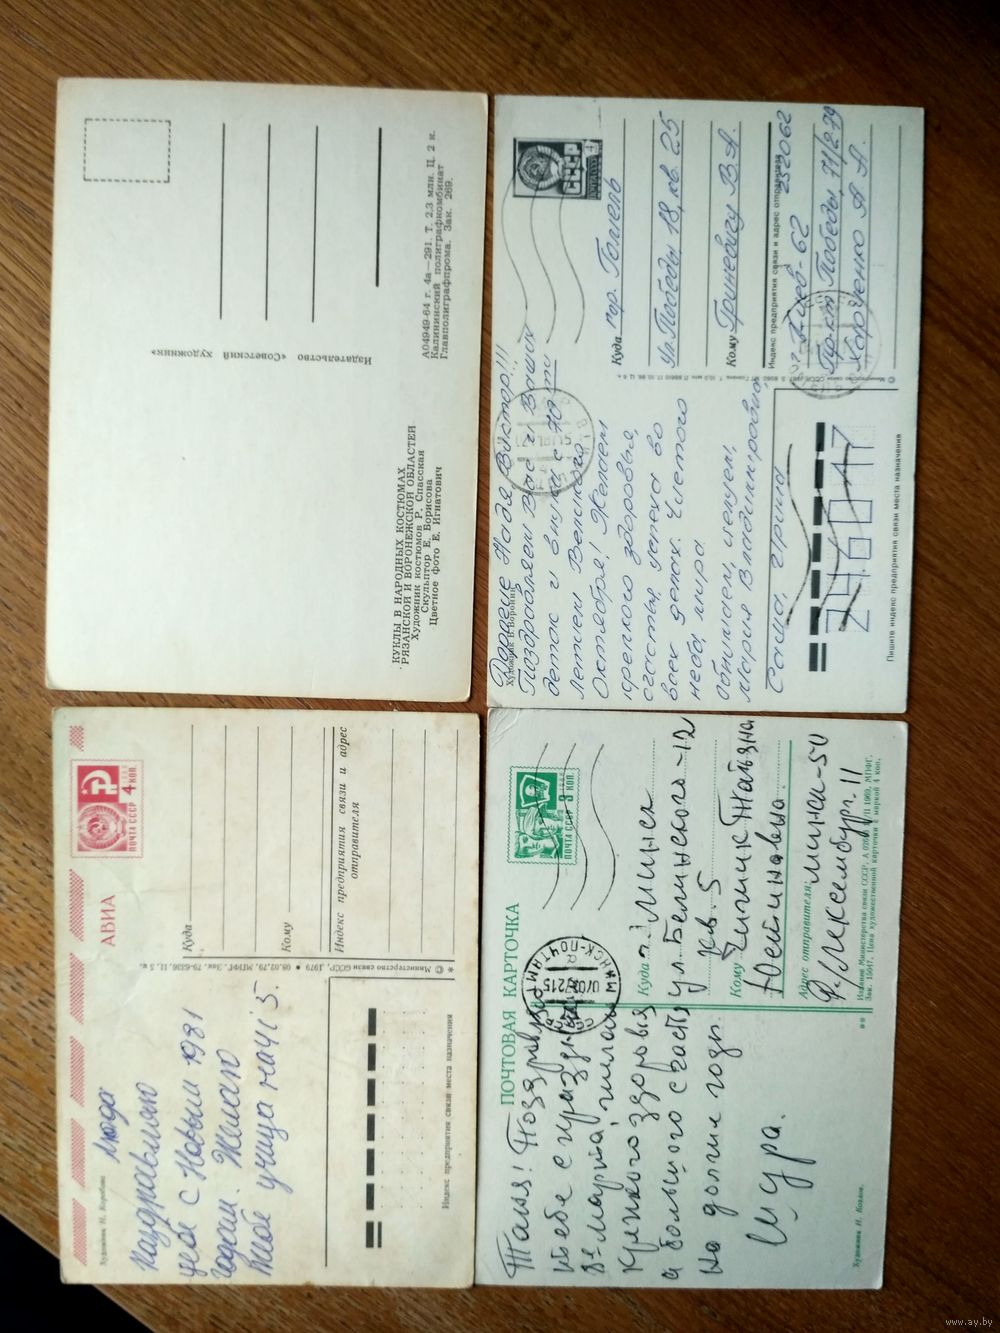 КУКЛЫ В НАРОДНЫХ КОСТЮМАХ
РЯЗАНСКОЙ И ВОРОНЕЖСКОЙ ОБЛАСТЕЙ
Художник костюмов Р. Спасская
Скульптор Е. Борисова
Цветное фото Е. Игнатович
Издательство «Советский художник»
А04949-64 г. 4а—291. Т. 2,3 млн. Ц. 2 к.
Калининский полиграфкомбинат
Главполиграфпрома. Зак. 269.
Художник В. Воронин
Дорогие Надя Виктор!!!
Поздравляем Вас и Ваших
деток и внуков с 70ти
летием Великого
Октября! Желаем
крепкого здоровья,
счастья, успеха во
всех делах. Чистого
неба, мира.
Обнимаем, целуем,
Мария Владимировна
Саша, Ирина
СССР
4
Куда гор. Гомель
Ул. Победы 18, кв. 25
Кому Гриневичу В.А.
Индекс предприятия связи и адрес отправителя
г. Киев-62 252062
Пр-кт Победы 71/219
Харченко А. А.
246017
Пишите индекс предприятия связи места назначения
Художник Н. Коробова
АВИА
ПОЧТА СССР 4 КОП.
Люда
паздравляю
цебя с Новым 1981
годом. Желаю
тибе учица на 5.
Куда
Кому
Индекс предприятия связи и адрес
отправителя
© Министерство связи СССР, 1979 • 08.02.79. МПФГ. Зак. 79-6336. Ц. 5 к.
Индекс предприятия связи места назначения
ПОЧТОВАЯ КАРТОЧКА
ПОЧТА СССР 3 КОП.
МИНСК-ПОЧТАМТ
Таня! Поздравляю
тебя с праздником
8-марта, желаю
Крепкого здоровья
а большого счастья
на долгие годы.
Шура.
Куда г. Минск
ул. Белинского-12
кв. 5
Кому
Татьяна
Адрес отправителя:
Минск-50
Р. Люксембург. 11
Издание Министерства связи СССР.
1969. МПФГ.
Цена художественной карточки с маркой 4 коп.
Художник Н. Козлов.
www.ay.by